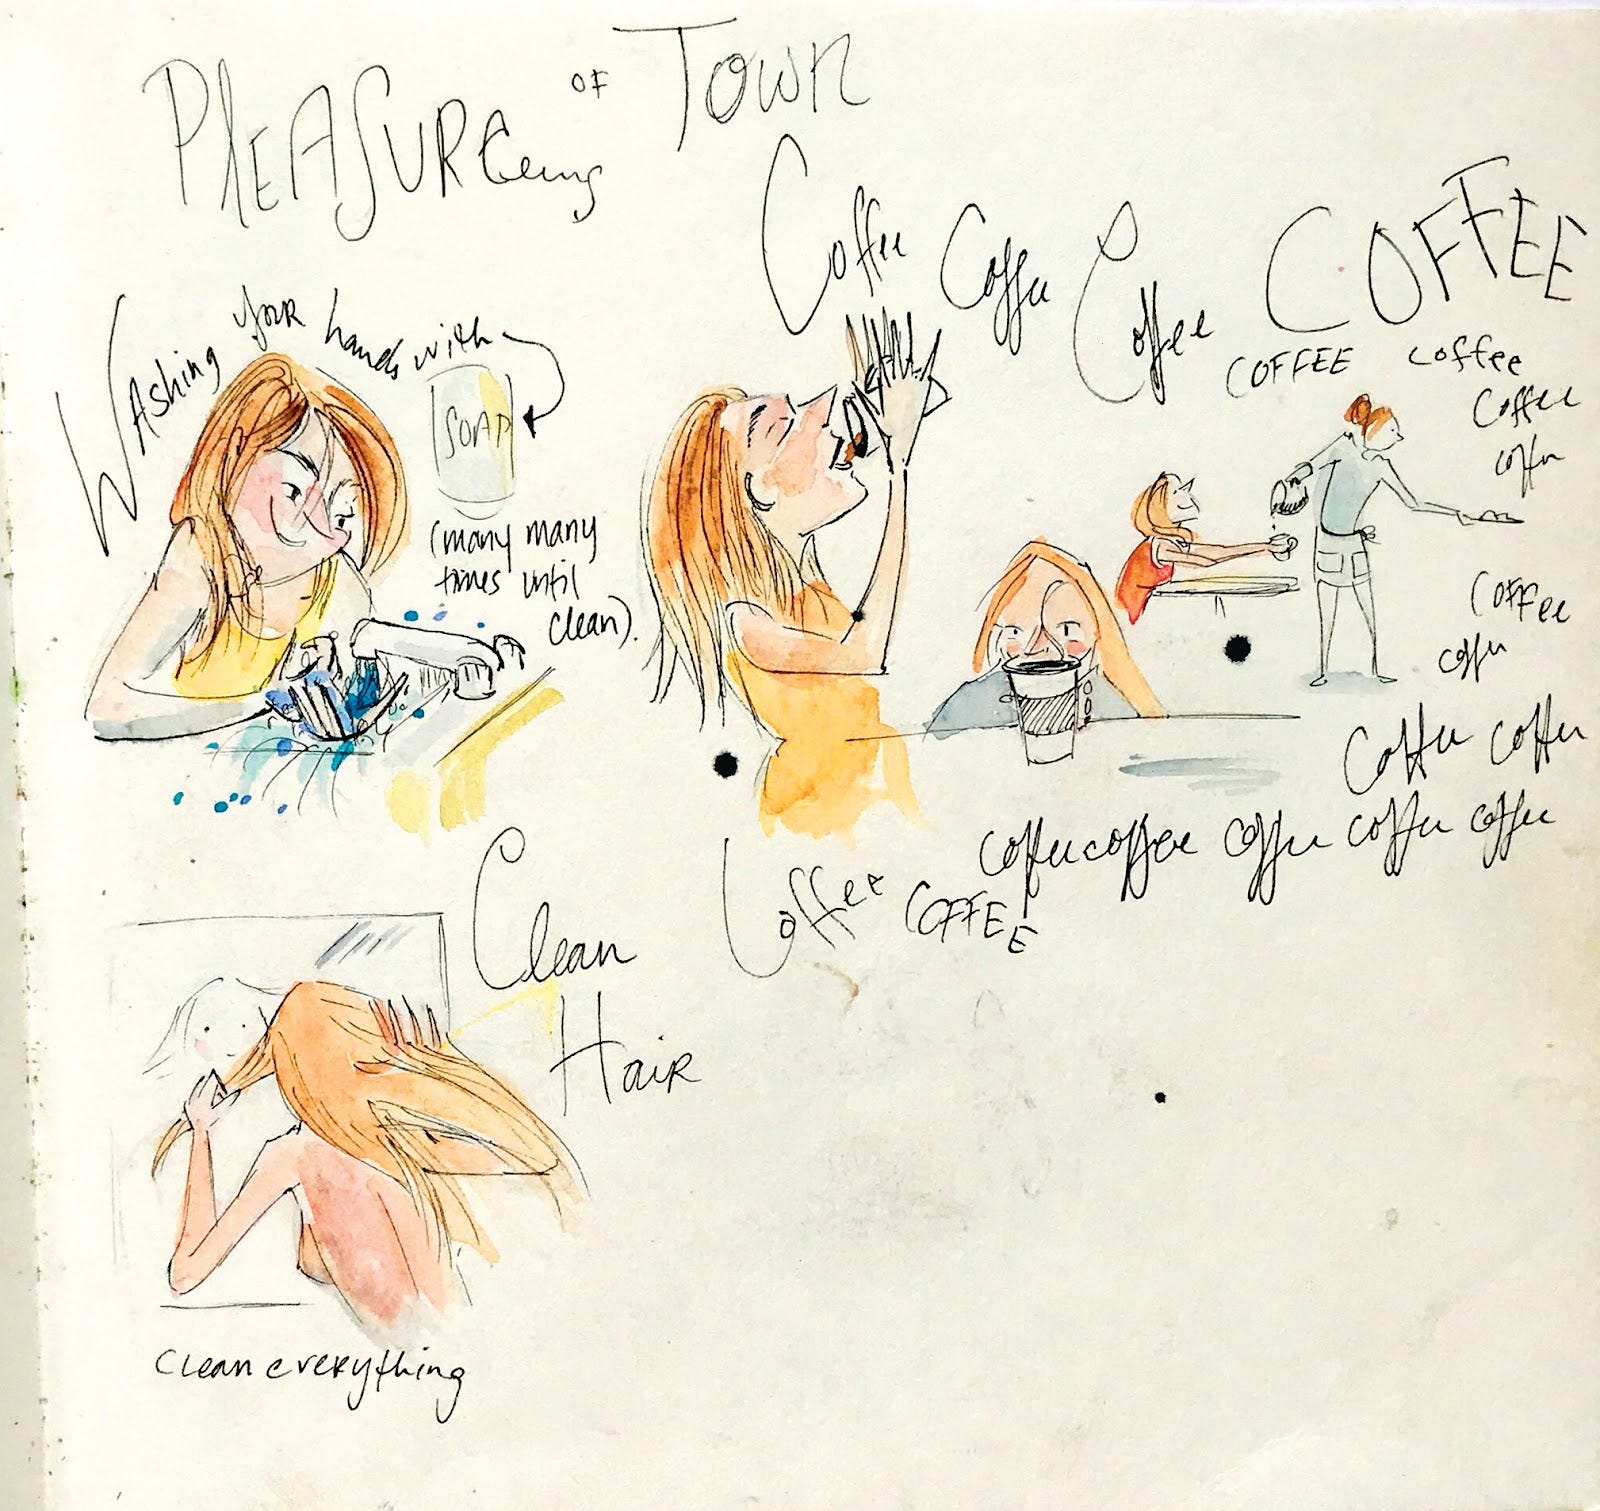 PleASURE OF Town
Coffee Coffee Coffee COFFEE
COFFEE coffee
Coffee
coffee
Washing your hands with
SOAP
(many many
times until
clean).
Coffee
coffee
Coffee coffee
Coffeecoffee coffee coffee coffee
Coffee COFFEE
Clean
Hair
Clean everything